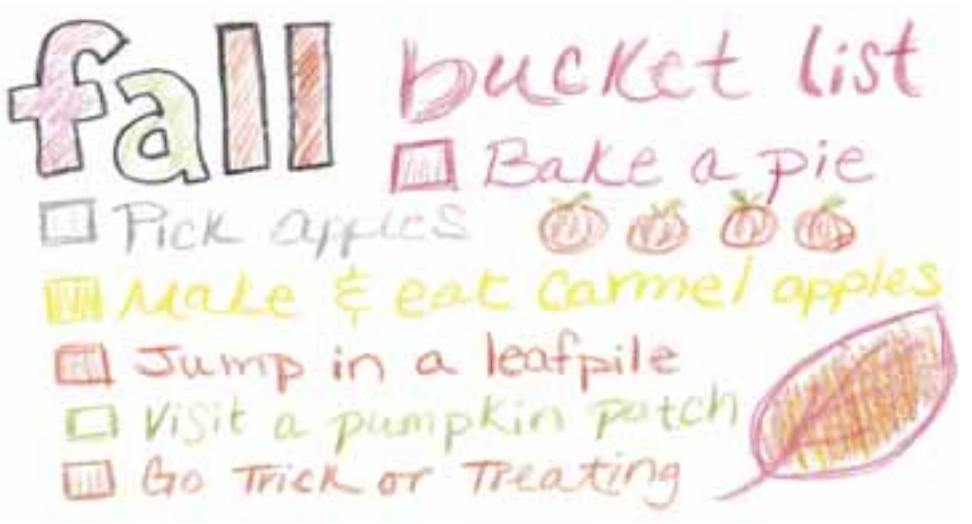 fall bucket list
Bake a pie
Pick apples
Make & eat Carmel apples
Jump in a leafpile
Visit a pumpkin patch
Go Trick or Treating